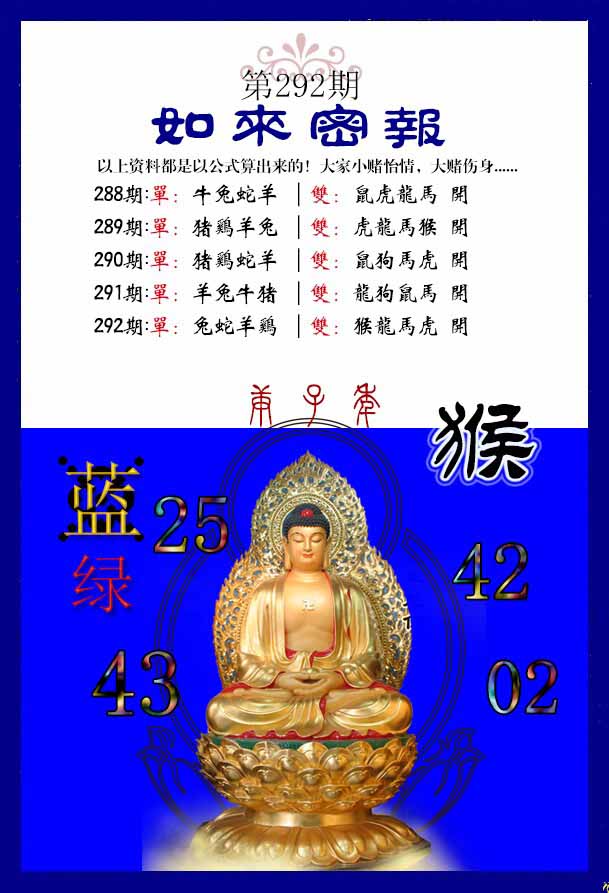 第292期
如來密報
以上资料都是以公式算出来的！大家小赌怡情，大赌伤身......
288期:單：牛兔蛇羊｜雙：鼠虎龍馬 開
289期:單：猪鷄羊兔｜雙：虎龍馬猴 開
290期:單：猪鷄蛇羊｜雙：鼠狗馬虎 開
291期:單：羊兔牛猪｜雙：龍狗鼠馬 開
292期:單：兔蛇羊鷄｜雙：猴龍馬虎 開
庚子年
猴
蓝
25
绿
42
43
02